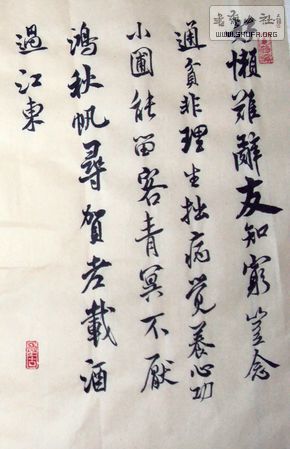 懶難辭友知窮豈念
通貧非理生拙病觉養心功
小圃能留客青冥不厭
鴻秋帆尋賀老載酒
過江東
WWW.SHUFA.ORG